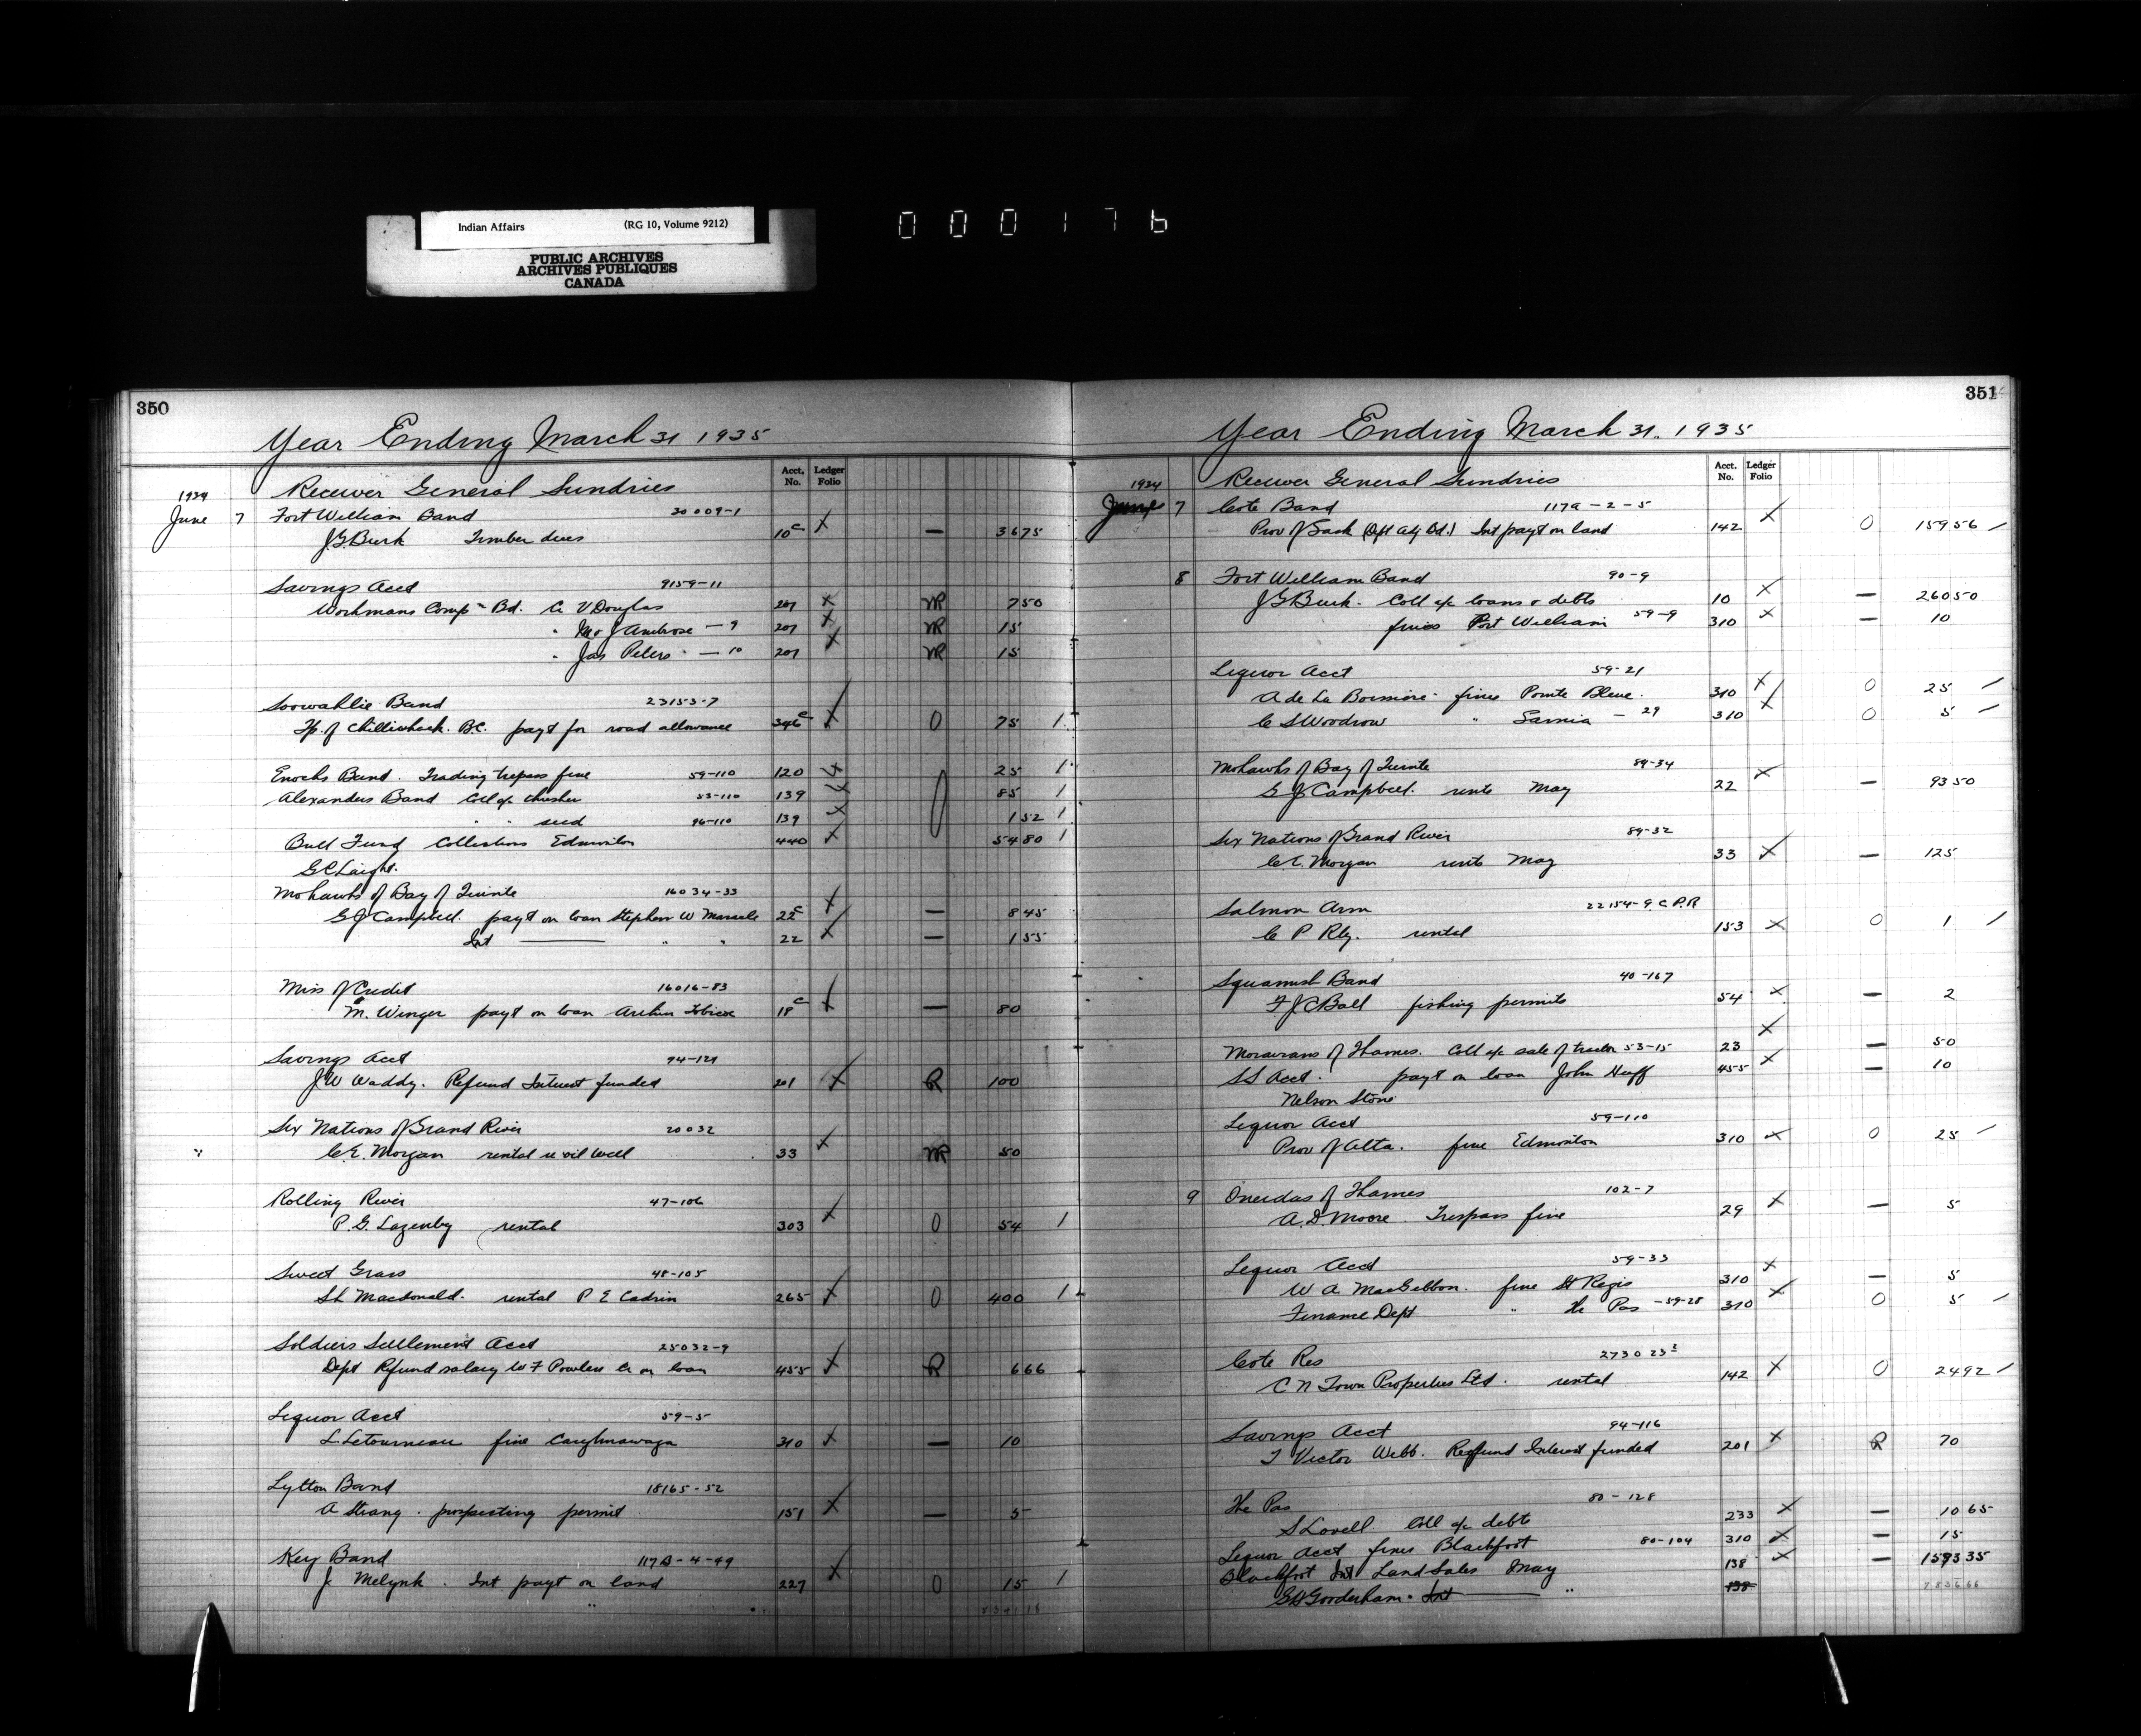 Indian Affairs (RG 10, Volume 9212)
PUBLIC ARCHIVES
ARCHIVES PUBLIQUES
CANADA
000176
350
Year Ending March 31 1935
Acct. No. Ledger Folio
1934 Receiver General Sundries
June 7 Fort William Band 30009-1
J.G. Burk Timber dues 10c x — 36 75
Savings Acct 9159-11
Workmans Compn Bd. Cr V Douglas 201 x NR 7 50
" Mrs J Ambrose — 9 201 x NR 15
" Jas Peters — 10 201 x NR 15
Soowahlie Band 23153-7
Tp. of Chilliwhack. B.C. payt for road allowance 346c x 0 75 /
Enochs Band. Trading trepass fine 59-110 120 x 25 /
Alexanders Band Coll a/c thresher 53-110 139 x 0 85 /
" " seed 96-110 139 x 1 52 /
Bull Fund Collections Edmonton 440 x 54 80 /
G.C. Laight.
Mohawks of Bay of Quinte 16034-33
G J Campbell. payt on loan Stephen W Maracle 22c x — 8 45
Int —— " " 22 x — 1 55
Miss of Credit 16016-83
M. Winger payt on loan Arthur Tobicoe 18c x — 80
Savings Acct 94-121
J W Waddy. Refund Interest funded 201 x R 100
Six Nations of Grand River 20032
C.E. Morgan rental re oil well 33 x NR 50
Rolling River 47-106
P. G. Lazenby rental 303 x 0 54 /
Sweet Grass 48-105
S L Macdonald. rental P E Cadrin 265 x 0 400 /
Soldiers Settlement Acct 25032-9
Dept Refund salary W F Powless Cr on loan 455 x R 6 66
Liquor Acct 59-5
L. Letourneau fine Caughnawaga 310 x — 10
Lytton Band 18165-52
A Strang. prospecting permit 151 x — 5
Key Band 117B-4-49
J Melynk. Int payt on land 227 x 0 15 /
351
Year Ending March 31. 1935
Acct. No. Ledger Folio
1934 Receiver General Sundries
June 7 Cote Band 117a-2-5
Prov of Sask (Dept Adj Bd.) Int payt on land 142 x 0 159 56 /
8 Fort William Band 90-9
J G Burk. Coll a/c loans & debts 10 x — 260 50
fines Port William 59-9 310 x — 10
Liquor Acct 59-21
A de La Boissiere fines Pointe Bleue. 310 x 0 25 /
C S Woodrow " Sarnia — 29 310 x 0 5 /
Mohawks of Bay of Quinte 89-34
G J Campbell. rents May 22 x — 93 50
Six Nations of Grand River 89-32
C.E. Morgan rents May 33 x — 125
Salmon Arm 22154-9. C.P.R
C P Rly. rental 153 x 0 1 /
Squamish Band 40-167
F J C Ball fishing permits 54 x — 2
Moravians of Thames. Coll a/c sale of tractor 53-15 23 x — 50
S S Acct. payt on loan John Huff 455 x — 10
Nelson Stone
Liquor Acct 59-110
Prov of Alta. fine Edmonton 310 x 0 25 /
9 Oneidas of Thames 102-7
A. D. Moore. Trespass fine 29 x — 5
Liquor Acct 59-33
W A. MacGibbon. fine St Regis 310 x — 5
Finance Dept " The Pas - 59-28 310 x 0 5 /
Cote Res 2730 23
C N Town Properties Ltd. rental 142 x 0 24 92 /
Savings Acct 94-116
T Victor Webb. Refund Interest funded 201 x R 70
The Pas 80-128
S Lovell Coll a/c debts 233 x — 10 65
Liquor Acct fines Blackfoot 80-104 310 x — 15
Blackfoot Int Land Sales May 138 x — 1593 35
G H Gooderham. Int —— " 138 7836 66